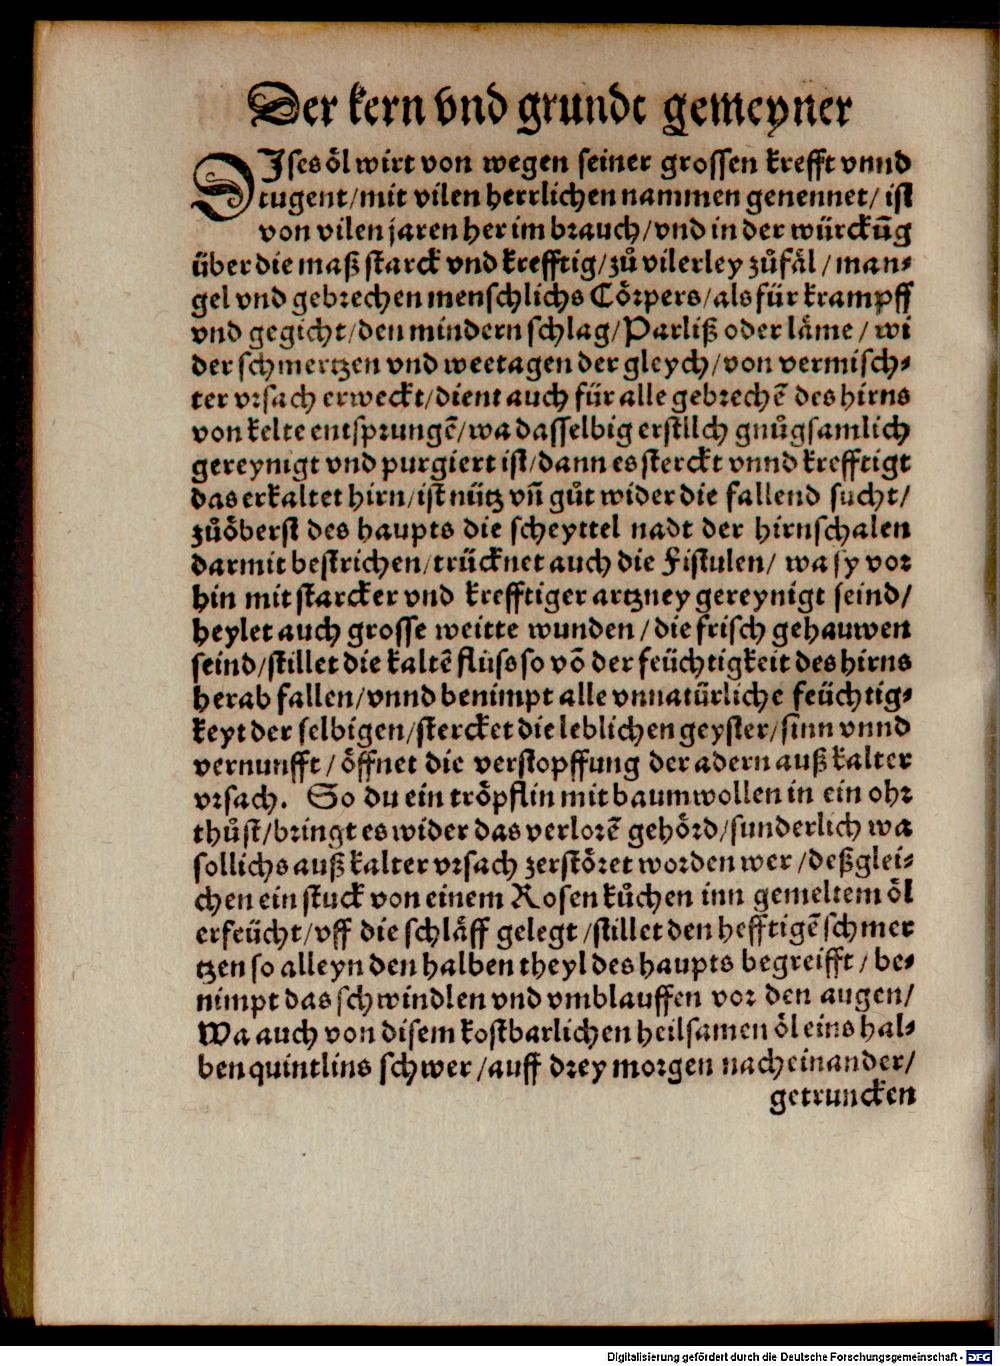 Der kern vnd grundt gemeyner
DIses öl wirt von wegen seiner grossen krefft vnnd
tugent/mit vilen herrlichen nammen genennet/ ist
von vilen jaren her im brauch/vnd in der würckūg
über die maß starck vnd krefftig/zů vilerley zůfäl/man⸗
gel vnd gebrechen menschlichs Cörpers/als für krampff
vnd gegicht/den mindern schlag/Parliß oder läme/wi
der schmertzen vnd weetagen der gleych/von vermisch⸗
ter vrsach erweckt/dient auch für alle gebrechē des hirns
von kelte entsprungē/wa dasselbig erstilch gnůgsamlich
gereynigt vnd purgiert ist/dann es sterckt vnnd krefftigt
das erkaltet hirn/ist nütz vñ gůt wider die fallend sucht/
zůöberst des haupts die scheyttel nadt der hirnschalen
darmit bestrichen/trücknet auch die Fistulen/ wa sy vor
hin mit starcker vnd krefftiger artzney gereynigt seind/
heylet auch grosse weitte wunden/die frisch gehauwen
seind/stillet die kaltē flüss so vō der feüchtigkeit des hirns
herab fallen/vnnd benimpt alle vnnatürliche feüchtig⸗
keyt der selbigen/stercket die leblichen geyster/sinn vnnd
vernunfft/öffnet die verstopffung der adern auß kalter
vrsach. So du ein tröpflin mit baumwollen in ein ohr
thůst/bringt es wider das verlorē gehörd/sunderlich wa
sollichs auß kalter vrsach zerstöret worden wer/deßglei⸗
chen ein stuck von einem Rosen kůchen inn gemeltem öl
erfeücht/vff die schläff gelegt/stillet den hefftigē schmer
tzen so alleyn den halben theyl des haupts begreifft/be⸗
nimpt das schwindlen vnd vmblauffen vor den augen/
Wa auch von disem kostbarlichen heilsamen öl eins hal⸗
ben quintlins schwer/auff drey morgen nacheinander/
getruncken
Digitalisierung gefördert durch die Deutsche Forschungsgemeinschaft - DFG